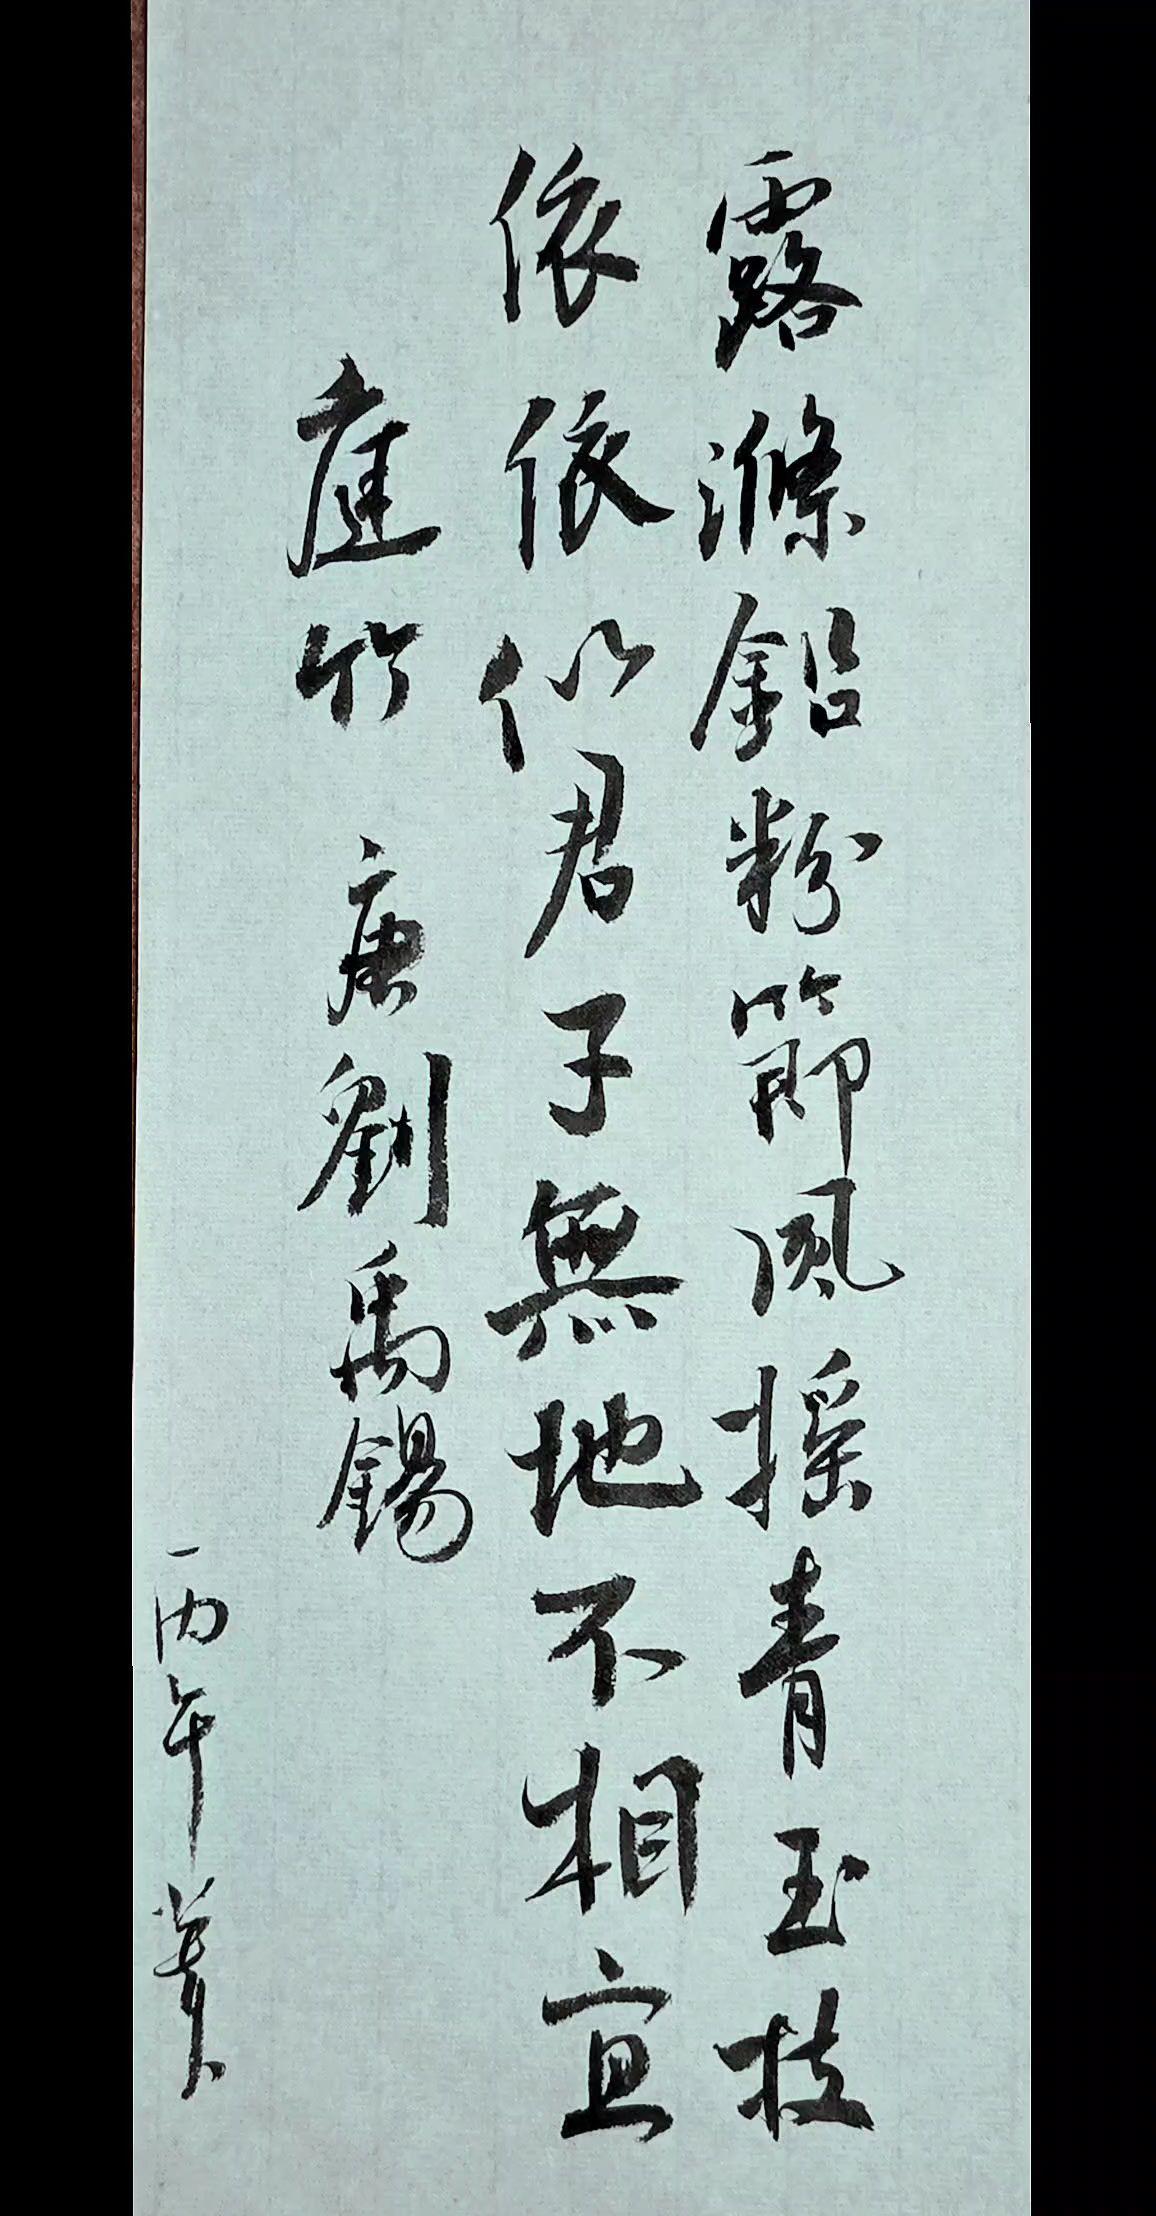 露滌鉛粉節風摇青玉枝
依依似君子無地不相宜
庭竹 唐劉禹錫
丙午